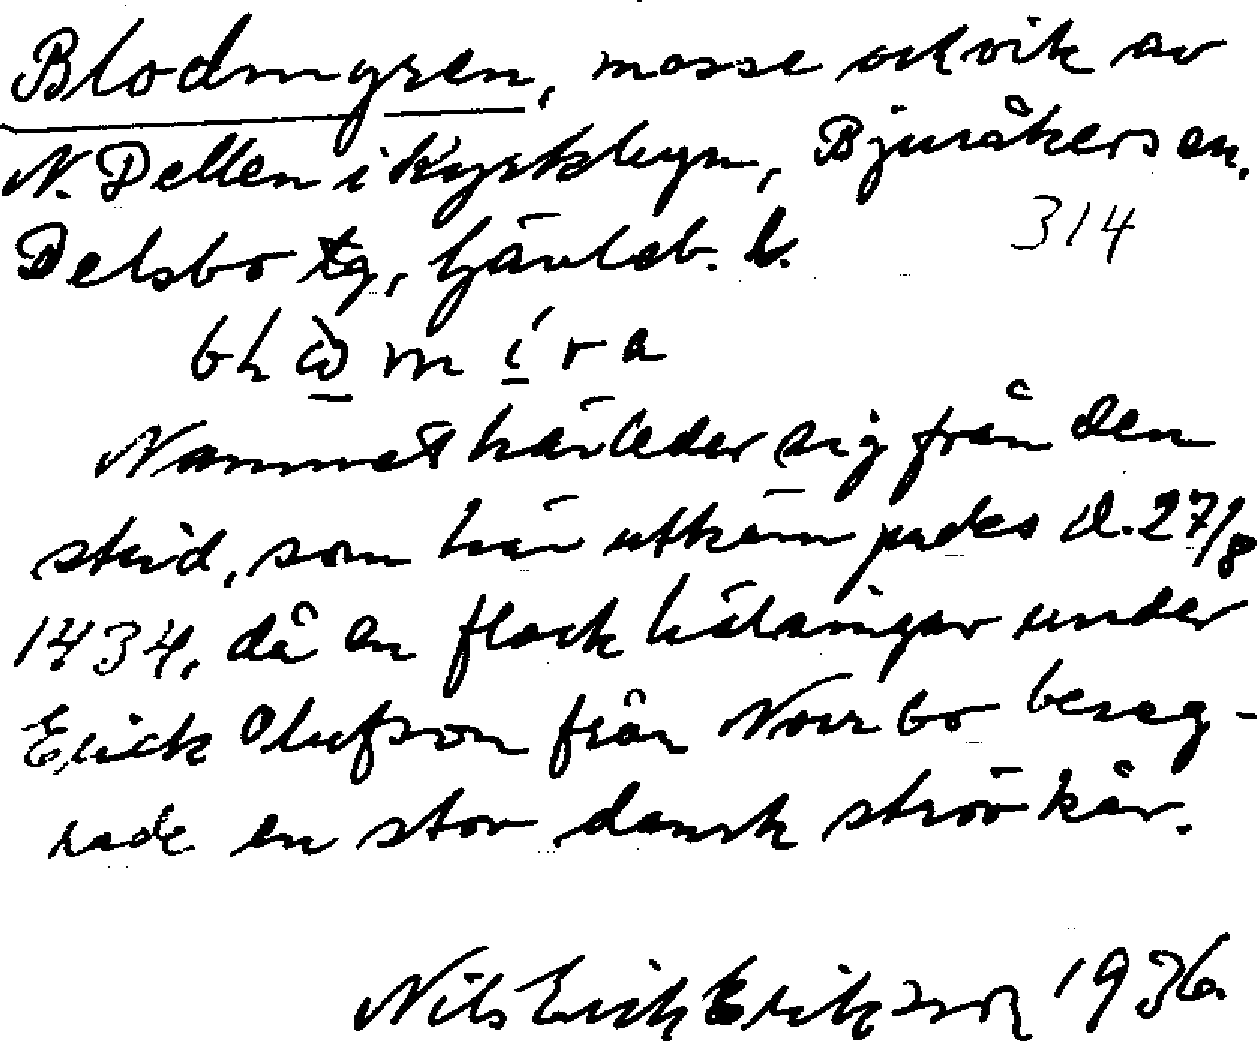 Blodmyren, mosse och vik av
N. Dellen i Kyrkbyn, Bjuråkers sn,
Delsbo tg, Gävleb. l.
314
Namnet härleder sig från den
strid, som här utkämpades d. 27/8
1434, då en flock hälsingar under
Erick Olufson från Norrbo beseg-
rade en stor dansk strövkår.
Nils Erick Erikzson 1936